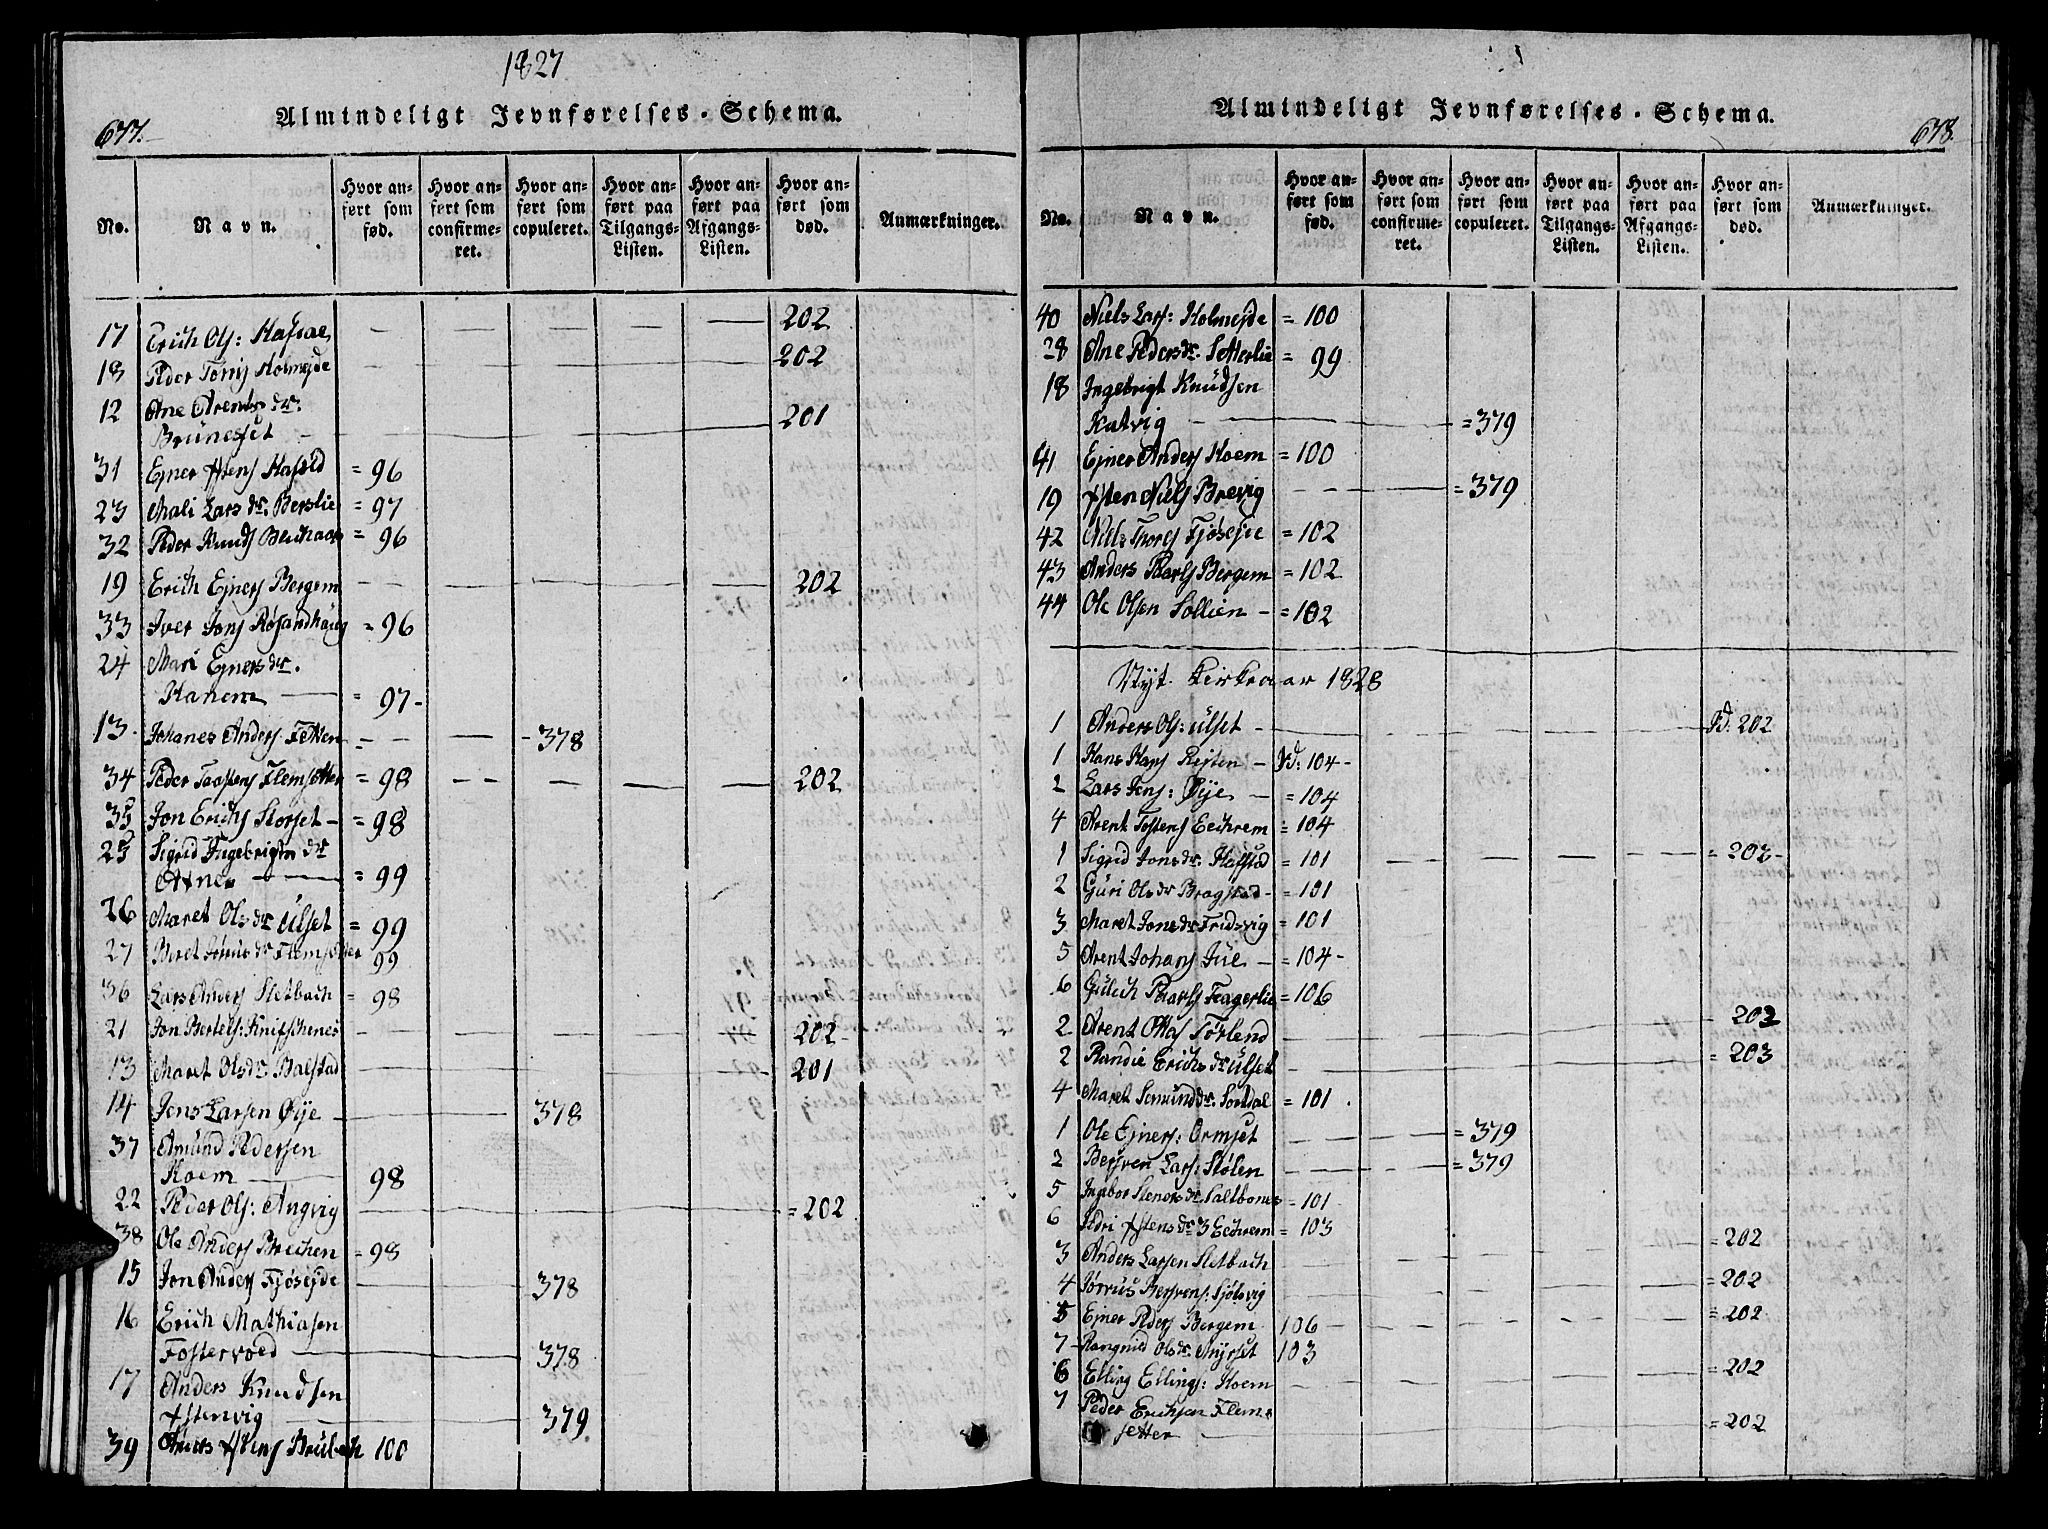 1827
677.
Almindeligt Jevnførelses-Schema.
No.
Navn.
Hvor anført som fød.
Hvor anført som confirmeret.
Hvor anført som copuleret.
Hvor anført paa Tilgangs-Listen.
Hvor anført paa Afgangs-Listen.
Hvor anført som død.
Anmærkninger.
17 Erich Ols: Hafsal 202
18 Peder Torris Holmejde 202
12 Ane Arents dr.
Brunesset 201
31 Ejner Astens Hafstd = 96
23 Mali Lars dr. Berslie = 97
32 Peder Knuds = 96
19 Erich Ejners Bergem 202
33 Iver Jons Røsandhaug = 96
24 Mari Ejners dr.
Hanem = 97-
13. Johanes Anders - 378
34 Peder Flemsetter = 98 202
35 Jon Erichs Storset = 98
25 Sigrid Ingebrigts dr
= 99
26 Maret Ols dr Ulset = 99
27 Beret dr Flemsetter 99
36 Lars Anders Sletbach = 98
21 Jon Bertels: 202-
13 Maret Ols dr Balstad 201
14 Jens Larsen Øye 378
37 Amund Pedersen
Koem 98
22 Peder Ols: Angvig = 202
38 Ole Anders Brechen = 98
15 Jon Anders Fjøsejde 378
16 Erich Mathiasen
Fostervoed 378
17 Anders Knudsen
Astenvig 379
39 Brubech 100
Almindeligt Jevnførelses-Schema.
678.
No.
Navn.
Hvor anført som fød.
Hvor anført som confirmeret.
Hvor anført som copuleret.
Hvor anført paa Tilgangs-Listen.
Hvor anført paa Afgangs-Listen.
Hvor anført som død.
Anmærkninger.
40 Niels Lars: Holmejde = 100
28 Ane Peders dr. Setterlie = 99
18 Ingebrigt Knudsen
Katvig = 379
41 Ejner Anders Koem = 100
19 Asten Niels Brevig = 379
42 Niels Tores Fjøsejde = 102
43 Anders Bergem = 102
44 Ole Olsen Sollien = 102
Nyt Kirkeaar 1828
1 Anders Ols: Ulset Pd. 202
1 Hans Hans Risten Pd: 104-
2 Lars Jens: Øye = 104
4 Arent Tostens Eechrem = 104
1 Sigrid Jons dr. Halstad = 101 = 203-
2 Guri Ols dr Bragstad = 101
3 Maret Jons dr Fridsvig = 101
5 Arent Johans = 104-
6 Gulech Fagerlie = 106
2 Arent Torlend 203
2 Randie Erichs dr Ulset = 203
4 Maret Semund dr. Sordal = 101
1 Ole Ejners: Ormset = 379
2 Bersven Lars: Stølen = 379
5 Ingebor Steners dr Saltbones = 101
6 Astens dr Eechrem = 103
3 Anders Larsen Sletbach = 202
4 Jorrus Bersvens: Sjølsvig = 202
5 Ejner Peders Bergem 106 = 202
7 Rangnid Ols dr. Myrset 103
6 Elling Ellings: Koem = 202
7 Peder Erichsen Flem-
setter = 202